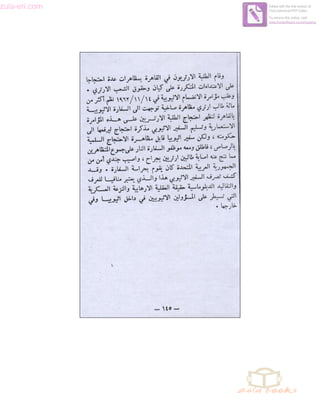 zula-eri.com
Edited with the trial version of
Foxit Advanced PDF Editor
To remove this notice, visit:
www.foxitsoftware.com/shopping
وقام الطلبة الارتريون في القاهرة بمظاهرات عدة احتجاجا
على الاعتداءات المتكررة على كيان وحقوق الشعب الارتري .
وعقب مؤامرة الانضمام الاثيوبية في ١٩٦٢/١١/١٤ نظم اكثر من
مائة طالب ارتري مظاهرة صاخبة توجهت الى السفارة الاثيوبيـــة
بالقاهرة لتظهر احتجاج الطلبة الارتـــريين علـــى هـــذه المؤامرة
الاستعمارية وتسليم السفير الاثيوبي مذكرة احتجاج ليرفعها الى
حكومته ، ولكن سفير اثيوبيا قابل مظاهـــرة الاحتجاج السلمية
بالرصاص ، فاطلق ومعه موظفو السفارة النار على جموع المتظاهرين
مما نتج عنه اصابة طالبين ارتريين بجراح ، واصيب جندي أمن من
الجمهورية العربية المتحدة كان يقوم بحراسة السفارة . وقـــد
كشف تصرف السفير الاثيوبي هذا والـــذي يعتبر منافيـــا للعرف
والتقاليد الدبلوماسية حقيقة العقلية الارهابية والنزعة العسكرية
التي تسيطر على المسؤولين الاثيوبيين في داخل اثيوبيـــا وفي
خارجها .
— ٦٤٥ —